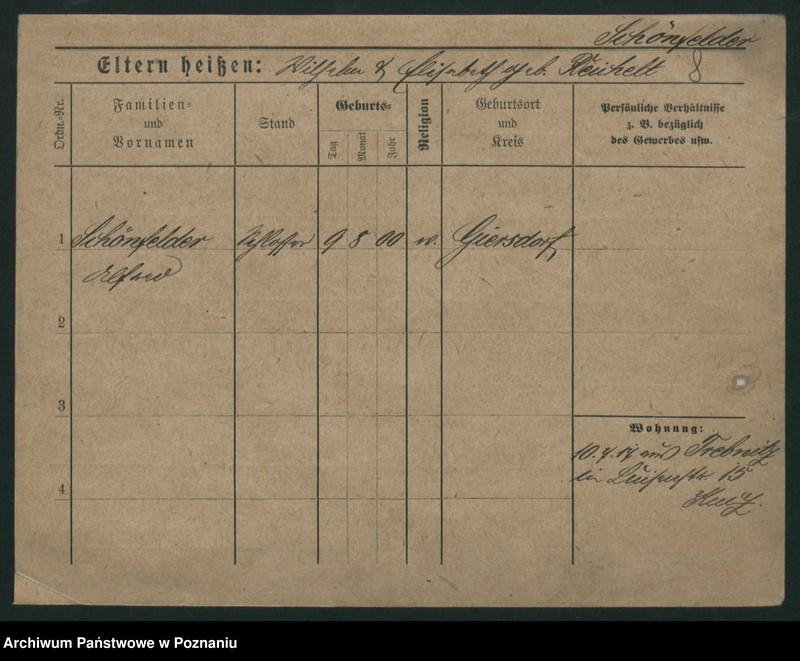 Schönfelder
Eltern heißen: Wilhelm & Elisabeth geb. Reichelt 8
Ordn.-Nr.
Familien-
und
Vornamen
Stand
Geburts-
Tag
Monat
Jahr
Religion
Geburtsort
und
Kreis
Persönliche Verhältnisse
z. B. bezüglich
des Gewerbes usw.
1 Schönfelder Schlosser 9 8 00 Giersdorf
Alfred
2
3
Wohnung:
aus Trebnitz
15
4
Archiwum Państwowe w Poznaniu